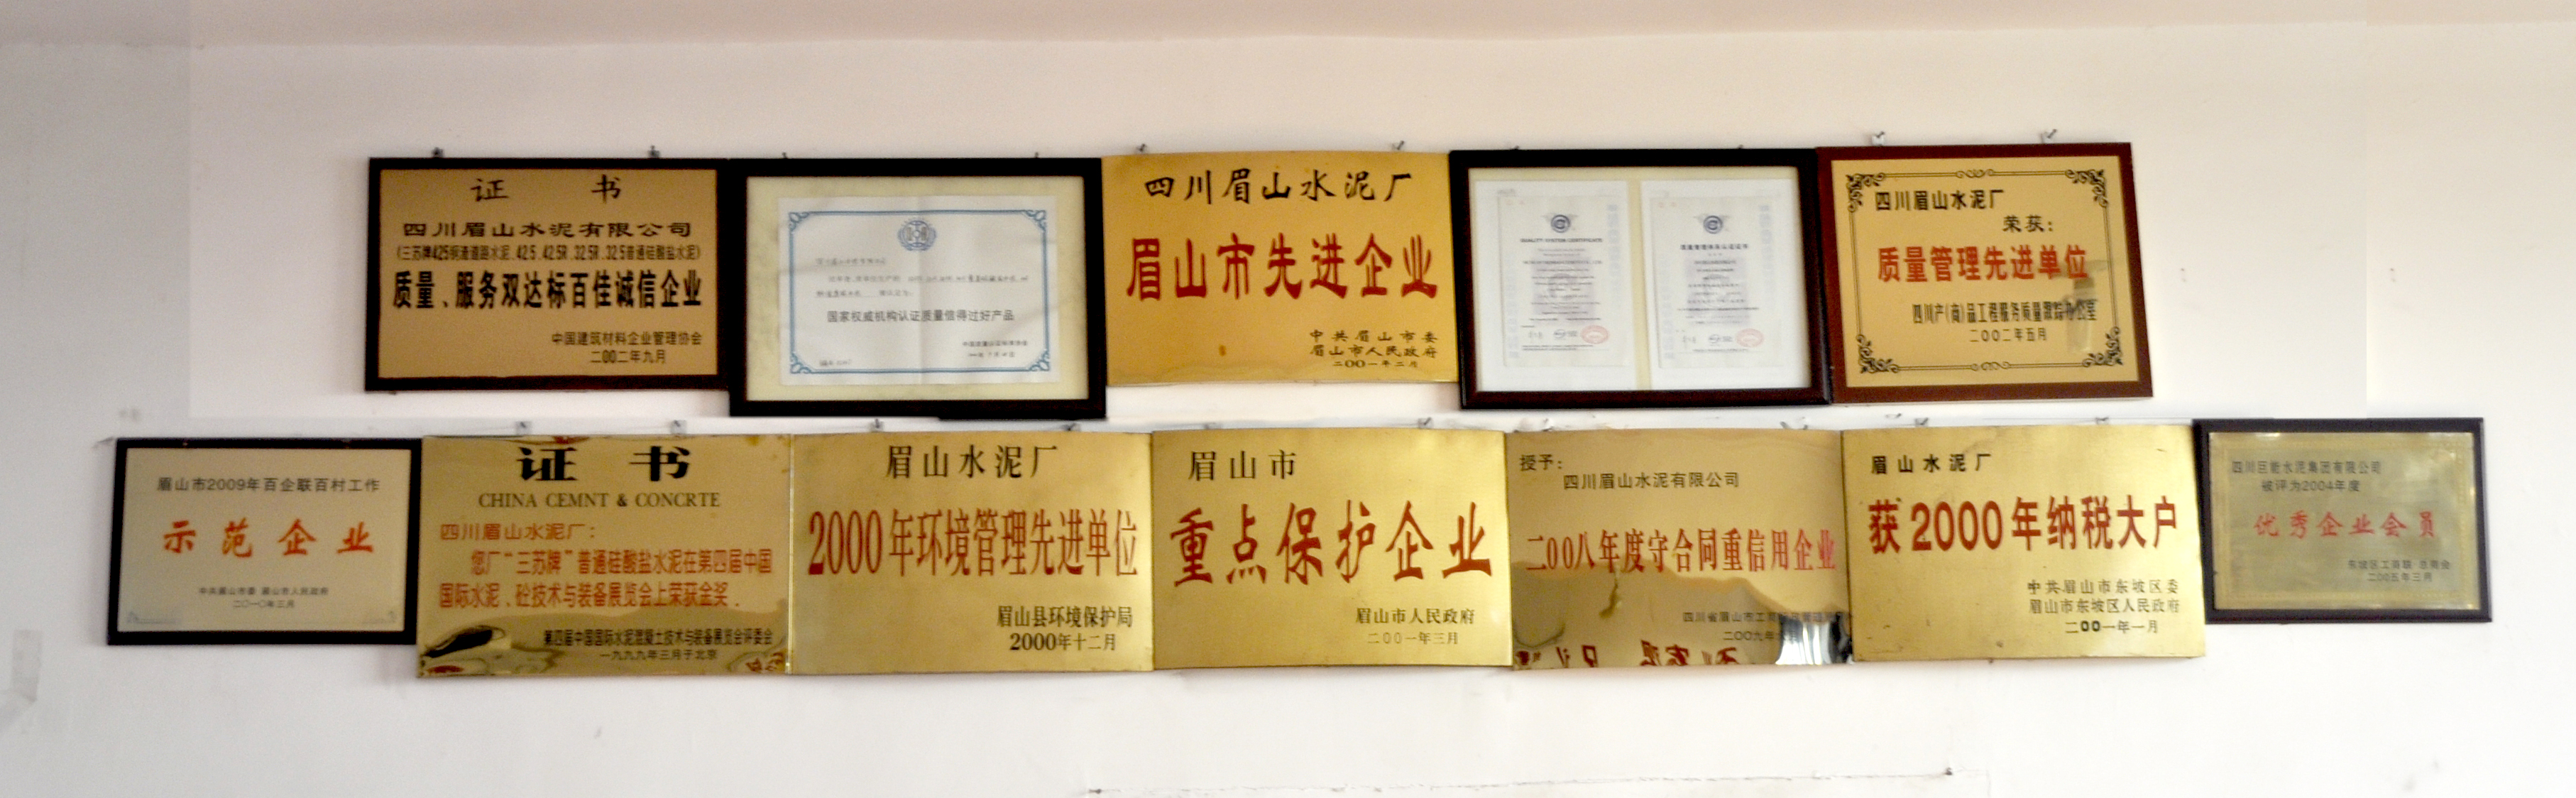 证 书
四川眉山水泥有限公司
(三苏牌425钢渣道路水泥、42.5、42.5R、32.5R、32.5普通硅酸盐水泥)
质量、服务双达标百佳诚信企业
中国建筑材料企业管理协会
二00二年九月
国家权威机构认证质量信得过好产品
四川眉山水泥厂
眉山市先进企业
中共眉山市委
眉山市人民政府
二00一年二月
QUALITY SYSTEM CERTIFICATE
质量管理体系认证证书
四川眉山水泥厂
荣获:
质量管理先进单位
四川产(商)品工程服务质量跟踪办公室
二00二年五月
眉山市2009年百企联百村工作
示范企业
中共眉山市委 眉山市人民政府
二〇一〇年三月
证 书
CHINA CEMNT & CONCRTE
四川眉山水泥厂:
您厂“三苏牌”普通硅酸盐水泥在第四届中国
国际水泥、砼技术与装备展览会上荣获金奖.
第四届中国国际水泥混凝土技术与装备展览会评委会
一九九九年三月于北京
眉山水泥厂
2000年环境管理先进单位
眉山县环境保护局
2000年十二月
眉山市
重点保护企业
眉山市人民政府
二00一年三月
授予:
四川眉山水泥有限公司
二00八年度守合同重信用企业
四川省眉山市工商
二00九年
眉山水泥厂
获2000年纳税大户
中共眉山市东坡区委
眉山市东坡区人民政府
二00一年一月
四川巨能水泥集团有限公司
被评为2004年度
优秀企业会员
东坡区工商联 总商会
二00五年三月